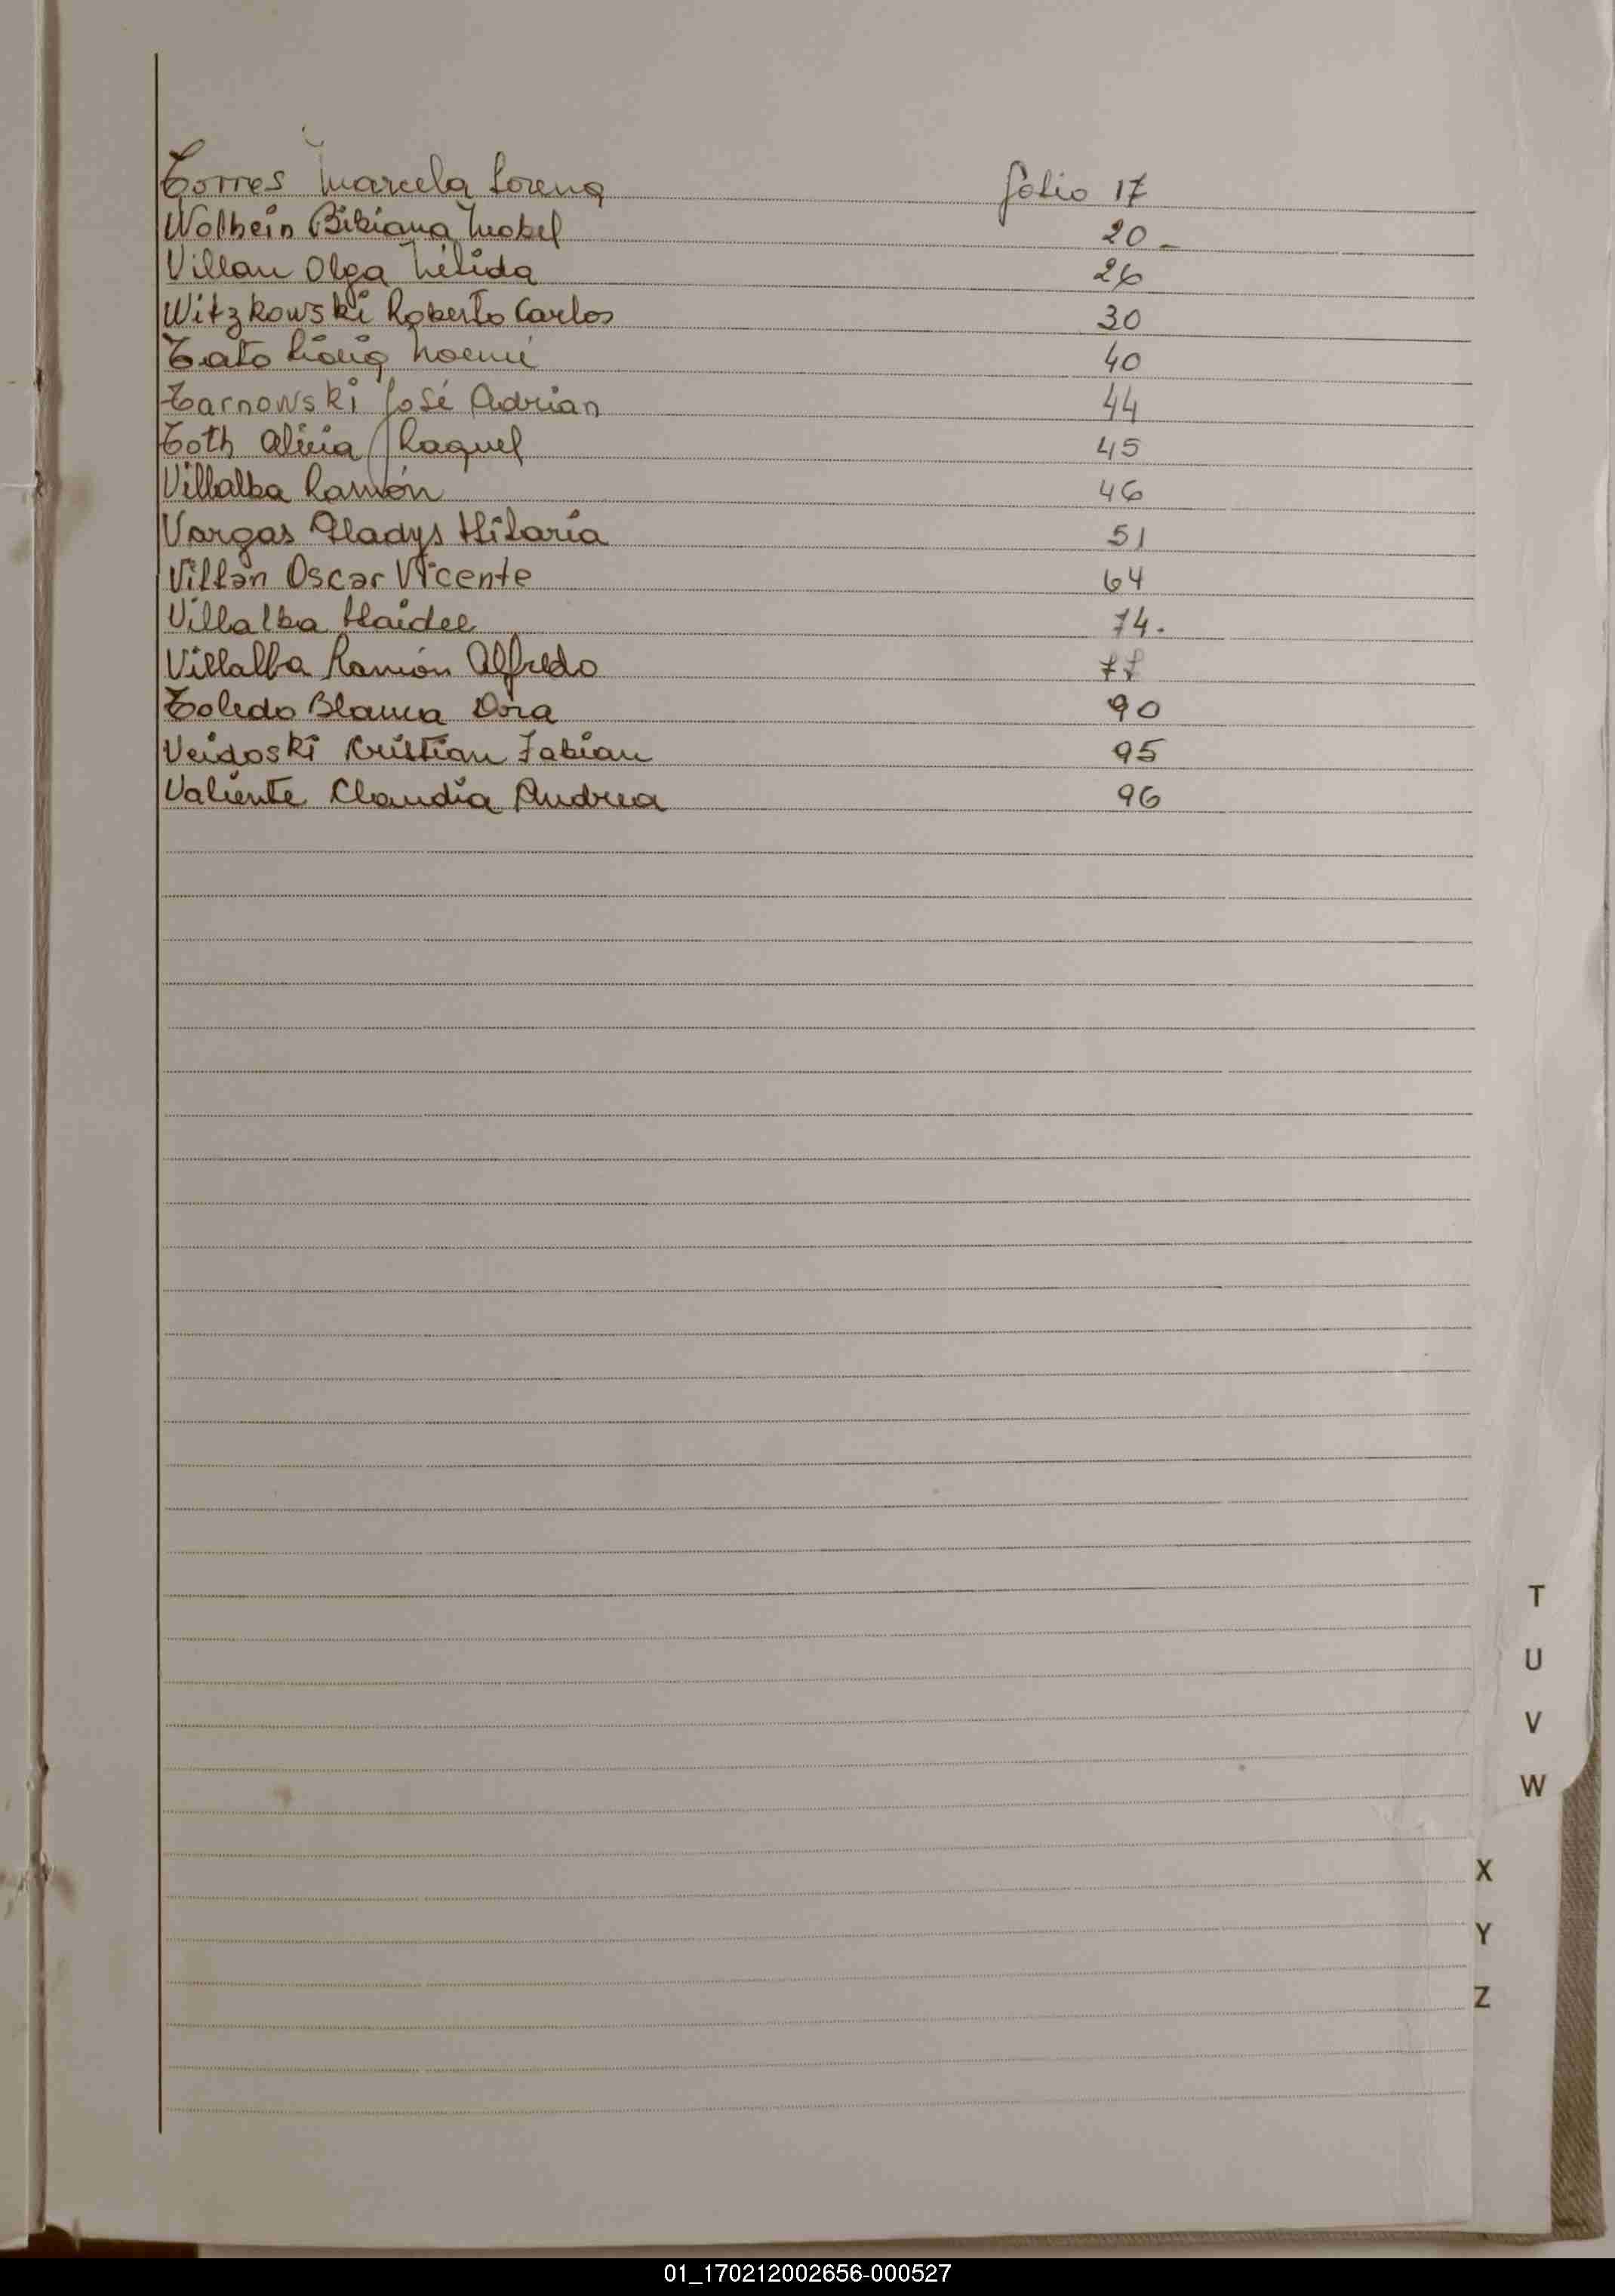 Torres Marcela Lorena folio 17
Wolhein Bibiana Mabel 20 -
Villan Olga Nélida 26
Witzkowski Roberto Carlos 30
Tato Noemí 40
Tarnowski José Adrian 44
Toth Alicia Raquel 45
Villalba Ramón 46
Vargas Gladys Hilaria 51
Villán Oscar Vicente 64
Villalba Haidee 74.
Villalba Ramón Alfredo 77
Toledo Blanca Dora 90
Veidoski Cristian Fabian 95
Valiente Claudia Andrea 96
T
U
V
W
X
Y
Z
01_170212002656-000527